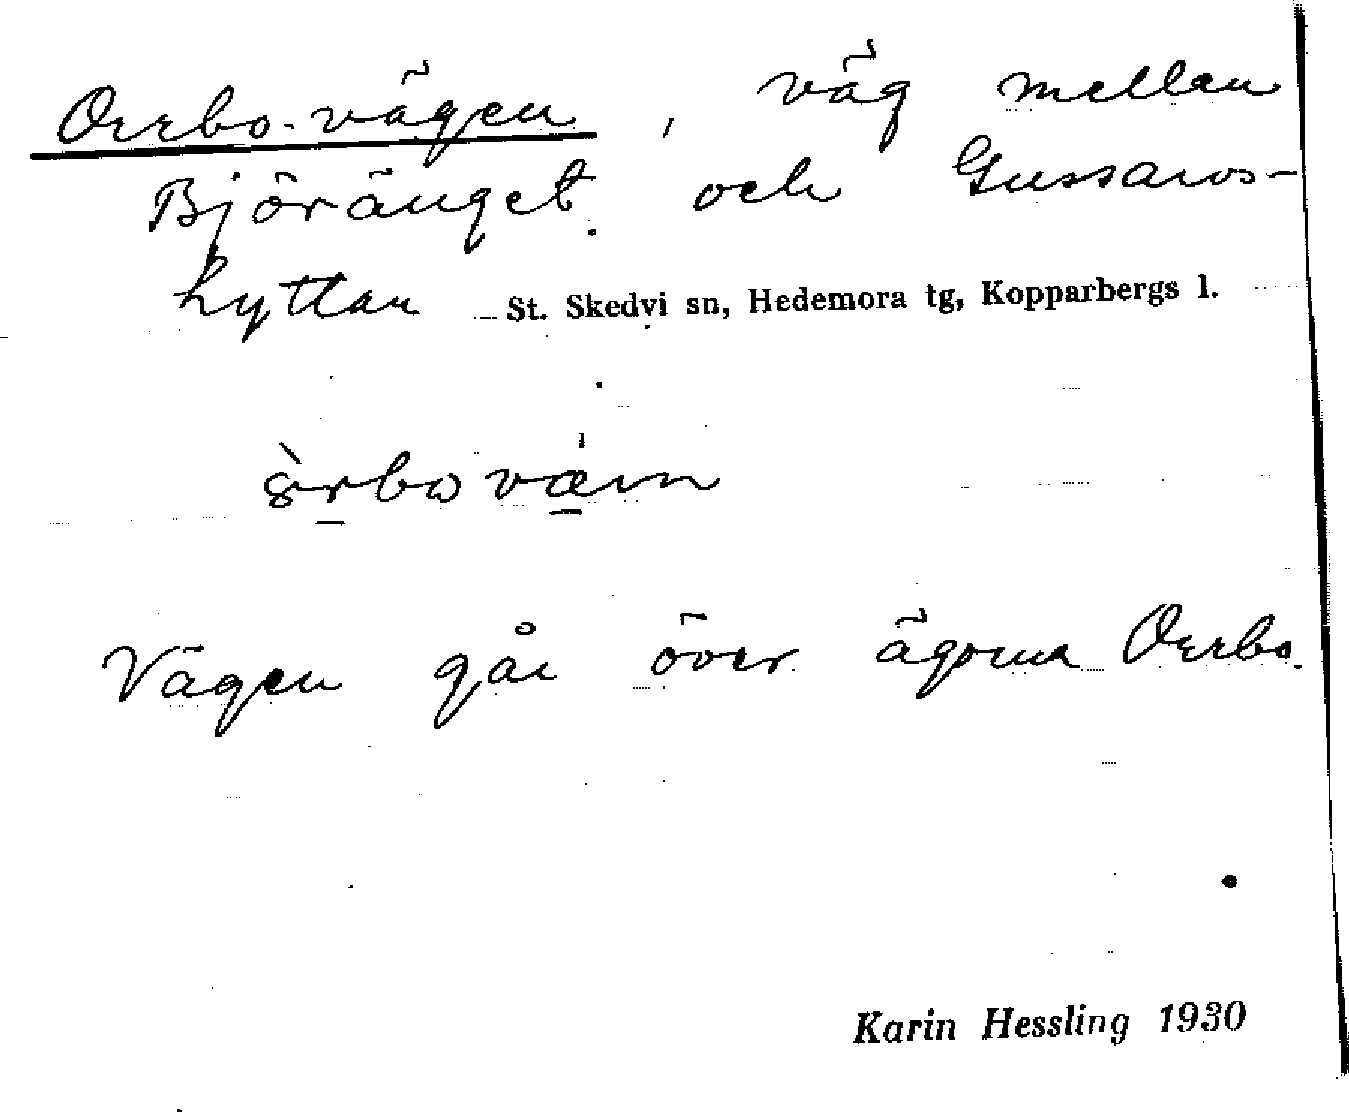 Orrbo-vägen, väg mellan
Björänget och Gussarvs-
hyttan St. Skedvi sn, Hedemora tg, Kopparbergs l.
Vägen går över ägorna Orrbo.
Karin Hessling 1930